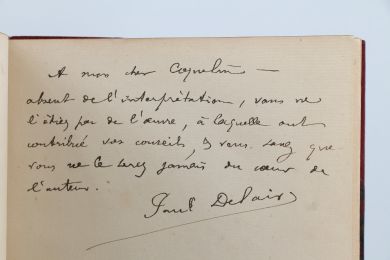 A mon cher Coquelin —
absent de l'interprétation, vous ne
l'étiez pas de l'œuvre, à laquelle ont
contribué vos conseils, & vous savez que
vous ne le serez jamais du cœur de
l'auteur.
Paul Delair